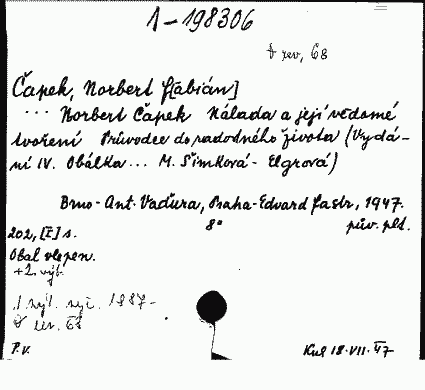 1-198306
rev, 68
Čapek, Norbert F[abián]
... Norbert Čapek Nálada a její vědomé
tvoření Průvodce do radostného života (Vydá-
ní IV. Obálka... M. Šimková-Elgrová)
Brno-Ant. Vaďura, Praha-Edvard Fastr, 1947.
8° pův. ptd.
202, [I] s.
Obal vlepen.
+2. výt.
1987-
rev. 68
P.V. Kul 18.VII.47